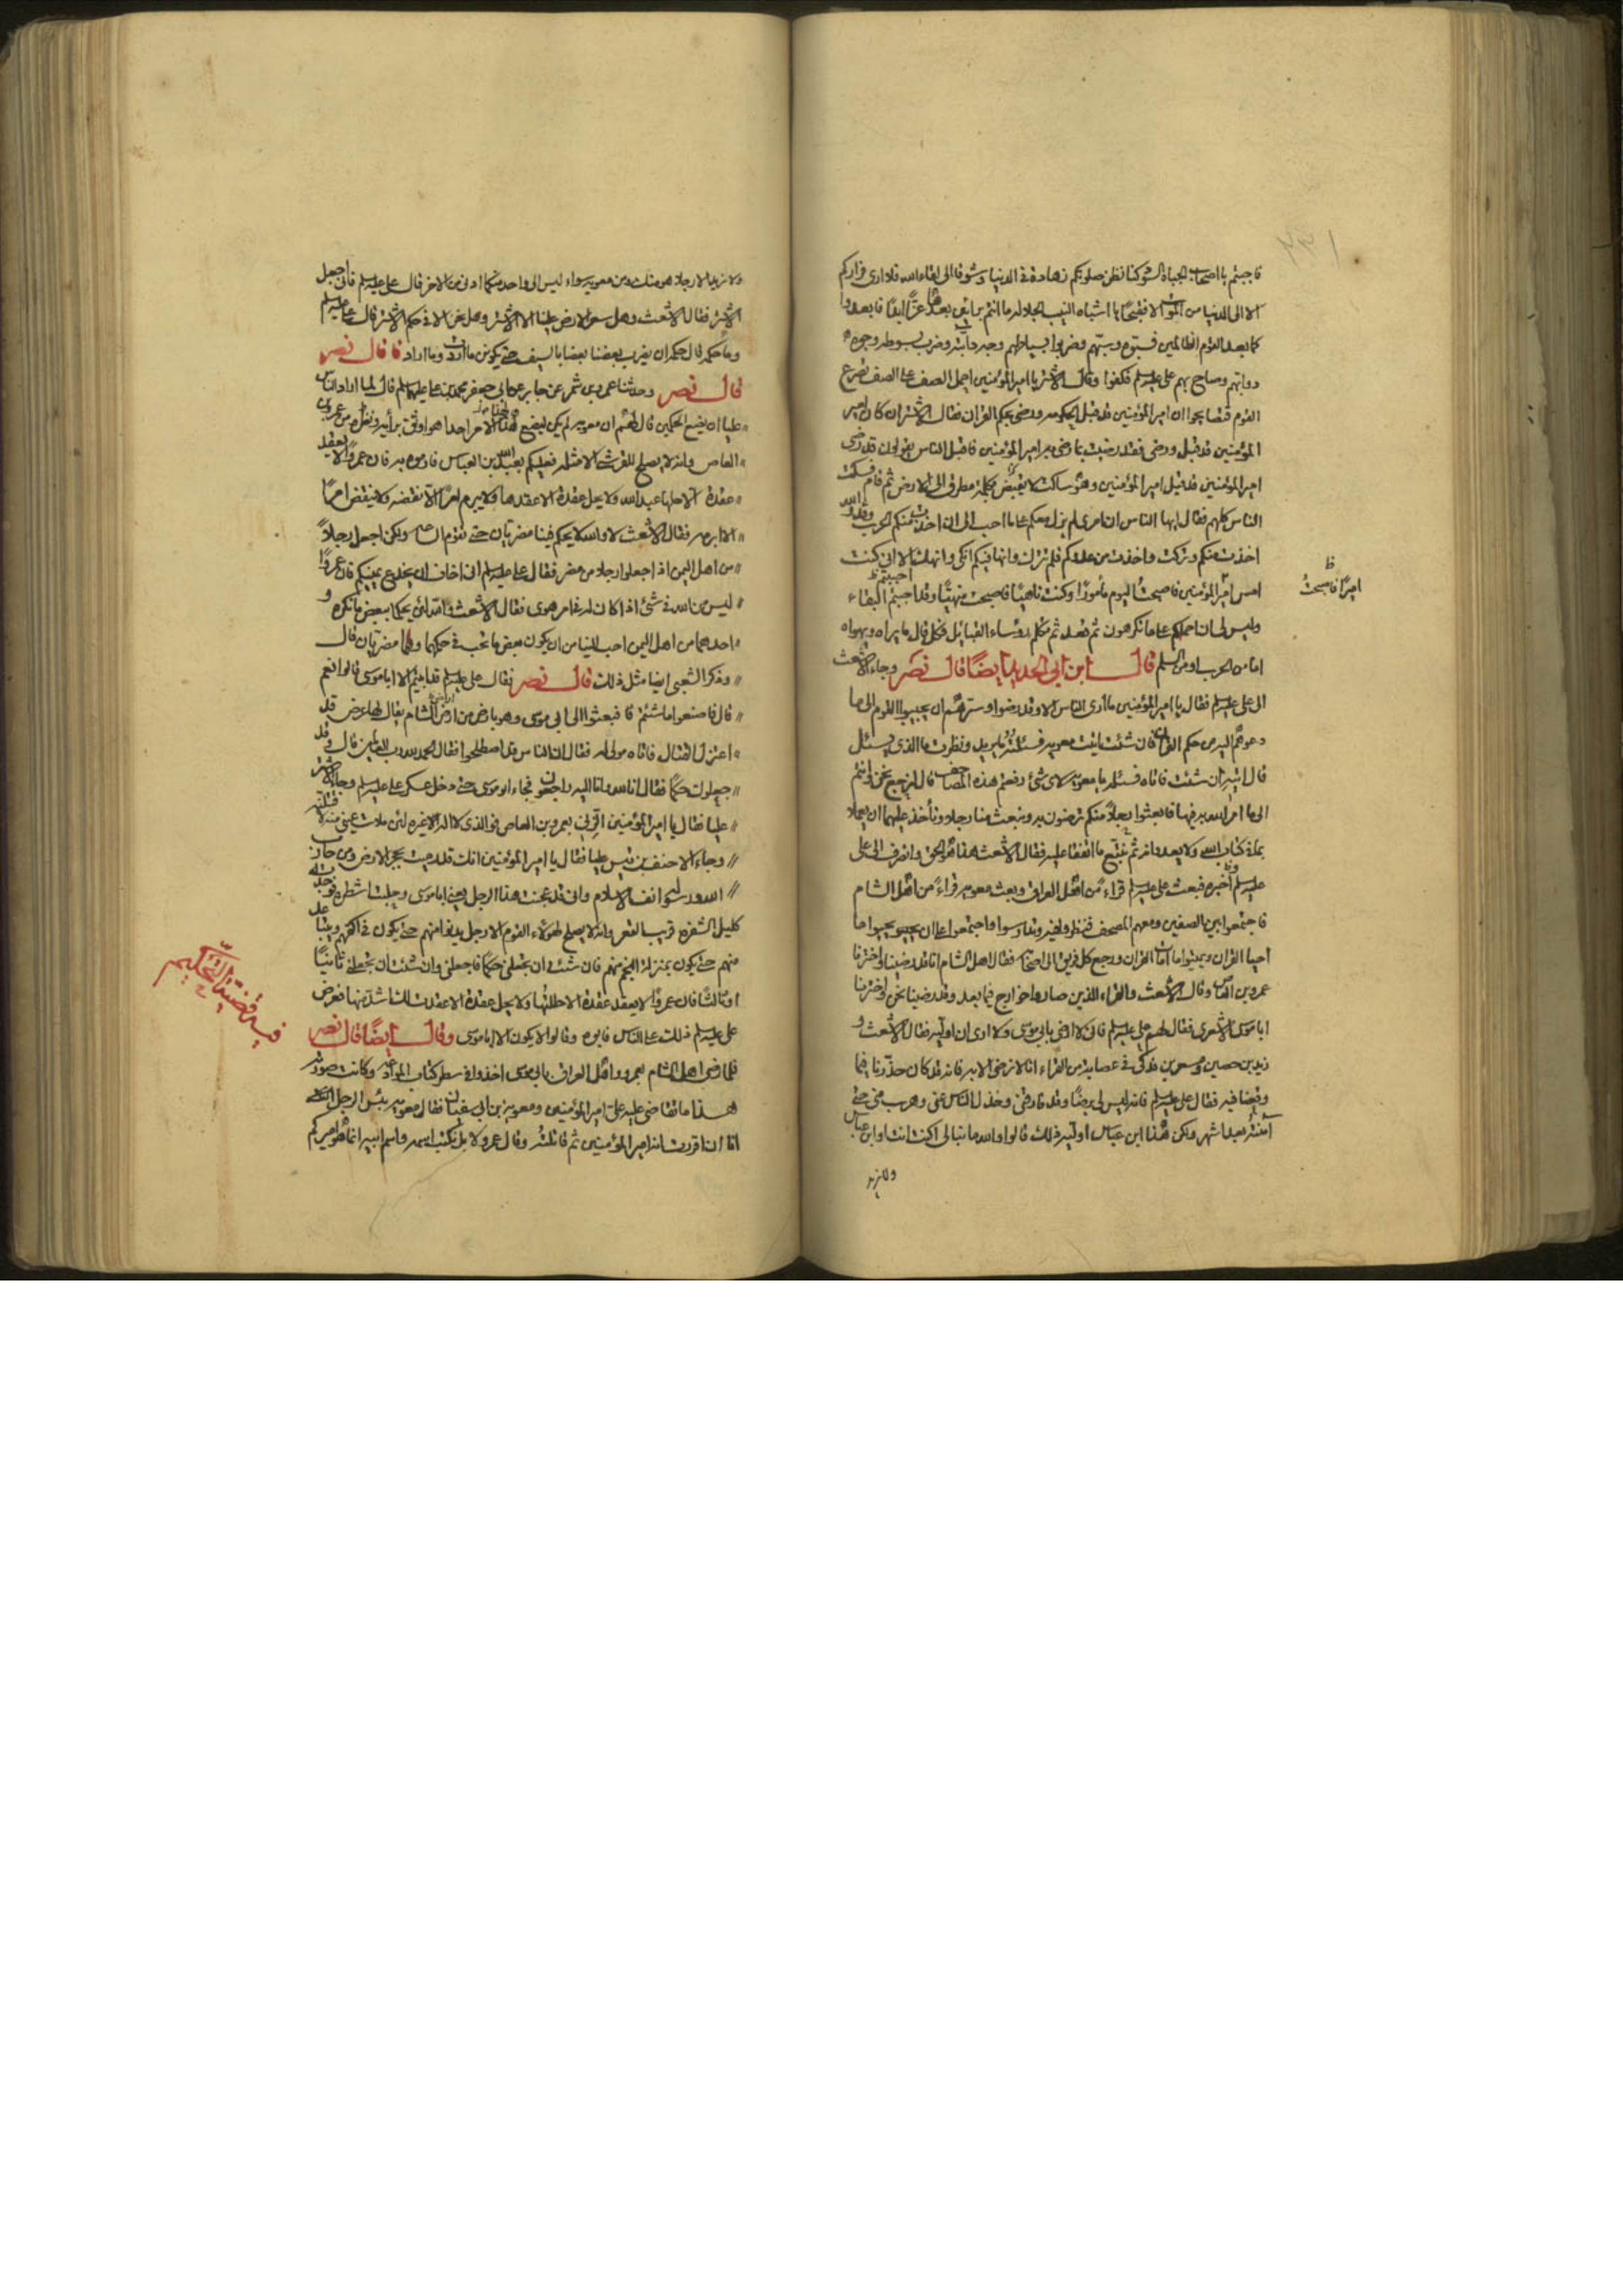 فاجبتم يا اصحاب الجباه السود كنا نظن صلوتكم زهادة فى الدنيا وشوقا الى لقاء الله فلا ارى فراركم
الا الى الدنيا من الموت الا فقبحًا يا اشباه النيب الجلاله ما انتم برائين بعدها عزًّا ابدًا فابعدوا
كما بعد القوم الظالمين فسبّوه وسبّهم وضربوا بسياطهم وجه دابته وضرب بسوطه وجوه
دوابّهم وصاح بهم على عليه السلم فكفوا وقال الاشتر يا امير المؤمنين احمل الصف على الصف تصرع
القوم فتصايحوا ان امير المؤمنين قد قبل الحكومه ورضى بحكم القران فقال الاشتر ان كان امير
المؤمنين قد قبل ورضى فقد رضيت بما رضى به امير المؤمنين فاقبل الناس يقولون قد رضى
امير المؤمنين قد قبل امير المؤمنين وهو ساكت لا يبض بكلمة مطرق الى الارض ثم قام فسكت
الناس كلهم فقال ايها الناس ان امرى لم يزل معكم على ما احب الى ان اخذت منكم الحرب وقد والله
اخذت منكم وتركت واخذت من عدوكم فلم تترك وانها فيكم انكى وانهك الا انى كنت
امس امير المؤمنين فاصبحت اليوم مأمورًا وكنت ناهيًا فاصبحت منهيًّا وقد احببتم البقاء
وليس لى ان احملكم على ما تكرهون ثم قعد ثم تكلم رؤساء القبائل فكل قال ما يراه ويهواه
اما من الحرب او من السلم قال ابن ابى الحديد ايضًا قال نصر وجاء الاشعث
الى على عليه السلم فقال يا امير المؤمنين ما ارى الناس الا وقد رضوا وسرّهم ان يجيبوا القوم الى ما
دعوهم اليه من حكم القران فان شئت اتيت معويه فسئلته ما يريد ونظرت ما الذى يسئل
قال ائته ان شئت فاتاه فسئله يا معويه لاى شئ رفعتم هذه المصاحف قال لنرجع نحن وانتم
الى ما امر الله به فيها فابعثوا رجلا منكم ترضون به ونبعث منا رجلا ونأخذ عليهما ان يعملا
بما فى كتاب الله ولا يعدوانه ثم نتبع ما اتفقا عليه فقال الاشعث هذا هو الحق وانصرف الى على
عليه السلم فاخبره فبعث على عليه السلم قراء من اهل العراق وبعث معويه قراءً من اهل الشام
فاجتمعوا بين الصفين ومعهم المصحف فنظروا فيه وتدارسوا واجتمعوا على ان يحيوا ما
احيا القران ويميتوا ما امات القران ورجع كل فريق الى اصحابه فقال اهل الشام انا قد رضينا واخترنا
عمرو بن العاص وقال الاشعث والقراء الذين صاروا خوارج فيما بعد وقد رضينا نحن واخترنا
ابا موسى الاشعرى فقال لهم على عليه السلم فانى لا ارضى بابى موسى ولا ارى ان اوليه فقال الاشعث و
زيد بن حصين ومسعر بن فدكى فى عصابة من القراء انا لا نرضى الا به فانه قد كان حذّرنا فيما
وقعنا فيه فقال على عليه السلم فانه ليس لى برضًا وقد فارقنى وخذل الناس عنى وهرب منى حتى
آمنته بعد اشهر ولكن هذا ابن عباس اوليه ذلك قالوا والله ما نبالى اكنت انت او ابن عباس
ولا نريد
ظ
اميرًا فاصبحتُ
ولا نريد الا رجلا هو منك ومن معويه سواء ليس الى واحد منكما ادنى من الاخر قال على عليه السلم فانى اجعل
الاشتر فقال الاشعث وهل سعر الارض علينا الا الاشتر وهل نحن الا فى حكم الاشتر قال على عليه السلم
وما حكمه قال حكمه ان يضرب بعضنا بعضا بالسيف حتى يكون ما اردت وما اراد قال نصر
قال نصر وحدثنا عمرو بن شمر عن جابر عن ابى جعفر محمد بن على عليهما السلم قال لما اراد الناس
عليا ان يضع الحكمين قال لهم ان معويه لم يكن ليضع لهذا الامر احدا هو اوثق برأيه ونظره من عمرو بن
العاص وانه لا يصلح للقرشى الا مثله فعليكم بعبد الله بن العباس فارموه به فان عمروًا لا يعقد
عقدة الا حلها عبد الله ولا يحل عقدة الا عقدها ولا يبرم امرًا الا نقضه ولا ينقض امرًا
الا ابرمه فقال الاشعث لا والله لا يحكم فينا مضريان حتى تقوم الساعه ولكن اجعل رجلاً
من اهل اليمن اذ اجعلوا رجلا من مضر فقال على عليه السلم انى اخاف ان يخدع يمنيكم فان عمروًا
ليس من الله فى شئ اذا كان له فى امر هوى فقال الاشعث والله لئن يحكما ببعض ما نكره و
احدهما من اهل اليمن احب الينا من ان يكون بعض ما نحب فى حكمهما وهما مضريان قال
وذكر الشعبى ايضا مثل ذلك قال نصر فقال على عليه السلم قد ابيتم الا ابا موسى قالوا نعم
قال فاصنعوا ما شئتم فبعثوا الى ابى موسى وهو بارض من ارض الشام يقال لها عرض قد
اعتزل القتال فاتاه مولى له فقال ان الناس قد اصطلحوا فقال الحمد لله رب العالمين قال وقد
جعلوك حكمًا فقال انا لله وانا اليه راجعون فجاء ابو موسى حتى دخل عسكر على عليه السلم وجاء الاشتر
عليا فقال يا امير المؤمنين الزنى بعمرو بن العاص فوالذى لا اله الا غيره لئن ملأت عينى منه لاقتلنه
وجاء الاحنف بن قيس عليا فقال يا امير المؤمنين انك قد رميت بحجر الارض ومن حارب
الله ورسوله انف الاسلام وانى قد عجمت هذا الرجل يعنى ابا موسى وحلبت اشطره فوجدته
كليل الشفره قريب القعر وانه لا يصلح لهؤلاء القوم الا رجل يدنوا منهم حتى يكون فى اكفهم ويتباعد
منهم حتى يكون بمنزلة النجم منهم فان شئت ان تجعلنى حكمًا فاجعلنى وان شئت ان تجعلنى ثانيًا
او ثالثًا فان عمروًا لا يعقد عقدة الا حللتها ولا يحل عقدة الا عقدت لك اشد منها فعرض
على عليه السلم ذلك على الناس فابوه وقالوا لا يكون الا ابا موسى وقال ايضًا قال نصر
فلما رضى اهل الشام بعمرو واهل العراق بابى موسى اخذوا فى سطر كتاب الموادعه وكانت صورته
هذا ما تقاضى عليه على امير المؤمنين ومعوية بن ابى سفيان فقال معويه بئس الرجل
انا ان اقررت انه امير المؤمنين ثم قاتلته وقال عمرو لا بل نكتب اسمه واسم ابيه انما هو اميركم
فيه قضية التحكيم